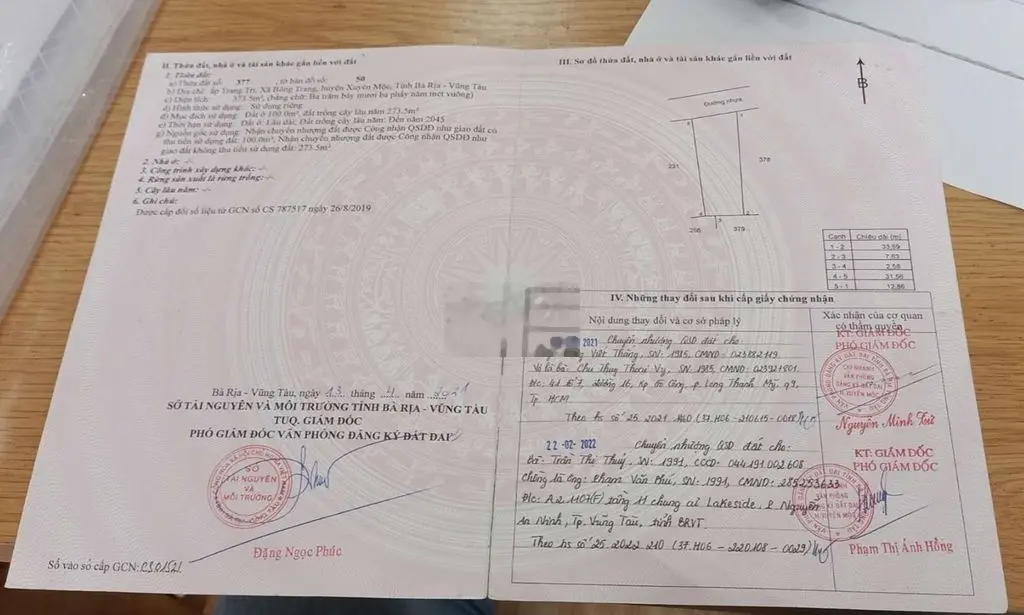 II. Thửa đất, nhà ở và tài sản khác gắn liền với đất
1. Thửa đất:
a) Thửa đất số: 377 , tờ bản đồ số: 50
b) Địa chỉ: ấp Trang Trí, Xã Bông Trang, huyện Xuyên Mộc, Tỉnh Bà Rịa - Vũng Tàu
c) Diện tích: 373.5m², (bằng chữ: Ba trăm bảy mươi ba phẩy năm mét vuông)
d) Hình thức sử dụng: Sử dụng riêng
đ) Mục đích sử dụng: Đất ở 100.0m²; đất trồng cây lâu năm 273.5m²
e) Thời hạn sử dụng: Đất ở: Lâu dài; Đất trồng cây lâu năm: Đến năm 2045
g) Nguồn gốc sử dụng: Nhận chuyển nhượng đất được Công nhận QSDĐ như giao đất có
thu tiền sử dụng đất: 100.0m²; Nhận chuyển nhượng đất được Công nhận QSDĐ như
giao đất không thu tiền sử dụng đất: 273.5m²
2. Nhà ở: -/-
3. Công trình xây dựng khác: -/-
4. Rừng sản xuất là rừng trồng: -/-
5. Cây lâu năm: -/-
6. Ghi chú:
Được cấp đổi số liệu từ GCN số CS 787517 ngày 26/8/2019
Bà Rịa - Vũng Tàu, ngày 13 tháng 4 năm 2021
SỞ TÀI NGUYÊN VÀ MÔI TRƯỜNG TỈNH BÀ RỊA - VŨNG TÀU
TUQ. GIÁM ĐỐC
PHÓ GIÁM ĐỐC VĂN PHÒNG ĐĂNG KÝ ĐẤT ĐAI
SỞ
TÀI NGUYÊN
VÀ
MÔI TRƯỜNG
Đặng Ngọc Phúc
Số vào sổ cấp GCN:
III. Sơ đồ thửa đất, nhà ở và tài sản khác gắn liền với đất
B
Đường nhựa
231
378
256
379
Cạnh Chiều dài (m)
1 - 2 33,59
2 - 3 7,63
3 - 4 2,58
4 - 5 31,56
5 - 1 12,86
IV. Những thay đổi sau khi cấp giấy chứng nhận
Nội dung thay đổi và cơ sở pháp lý
Xác nhận của cơ quan
có thẩm quyền
2021 Chuyển nhượng QSD đất cho
Viết Thắng, SN: 1985, CMND: 023882119
Và là bà: Chu Thụy Thiên Vy, SN: 1985, CMND: 023921801.
Đ/c: 41 đường 16, Kp Gò Công, p. Long Thạnh Mỹ, q9,
Tp. HCM
Theo hs số 25.2021
KT. GIÁM ĐỐC
PHÓ GIÁM ĐỐC
CHI NHÁNH
VĂN PHÒNG
ĐĂNG KÝ ĐẤT ĐAI
Nguyễn Minh Trí
22-02-2022 Chuyển nhượng QSD đất cho:
Bà: Trần Thị Thuý, SN: 1991, CCCD: 044191002608
Chồng là ông: Phạm Văn Phú, SN: 1991, CMND: 285253633
Đ/c: A2.1107(F) tầng 11 chung cư Lakeside, P. Nguyễn
An Ninh, Tp. Vũng Tàu, tỉnh BRVT.
Theo hs số 25.2022.210 (37.H06 - 220108 - 0029)
KT. GIÁM ĐỐC
PHÓ GIÁM ĐỐC
VĂN PHÒNG
ĐĂNG KÝ ĐẤT ĐAI
H. XUYÊN MỘC
Phạm Thị Ánh Hồng